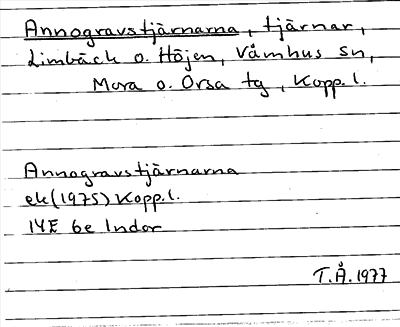 Annogravstjärnarna, tjärnar,
Limbäck o. Höjen, Våmhus sn,
Mora o. Orsa tg, Kopp. l.
Annogravstjärnarna
ek (1975) Kopp. l.
14E 6e Indor
T.Å. 1977